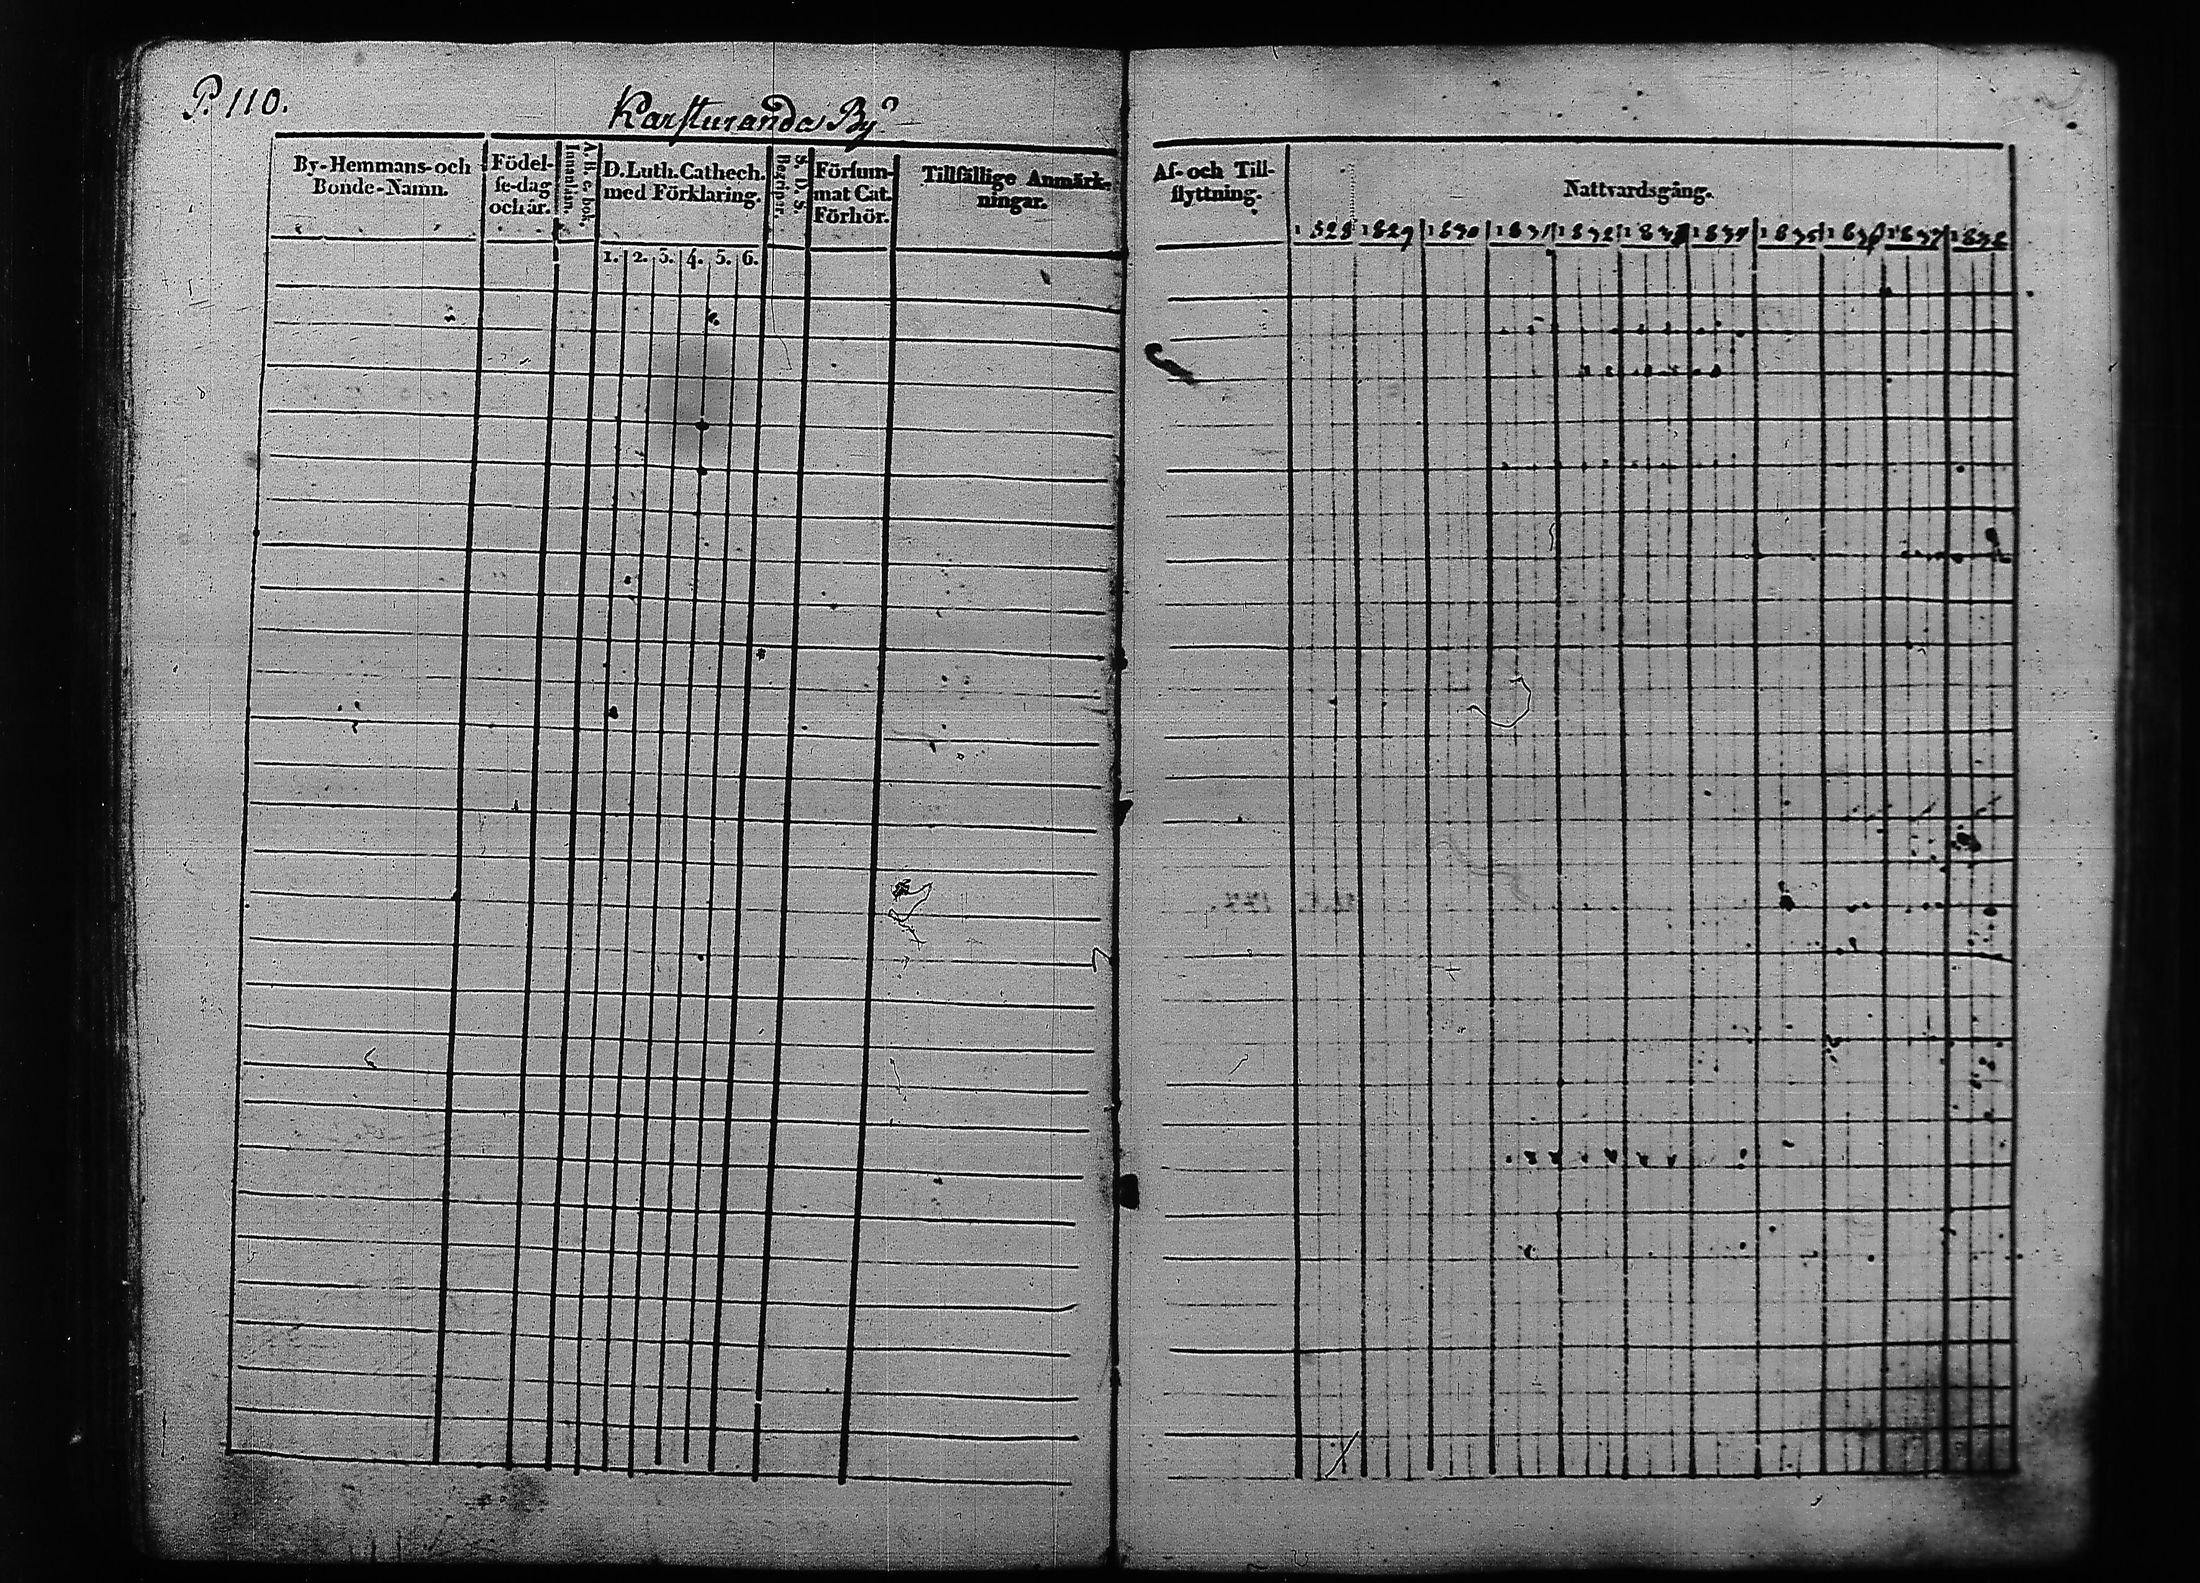 P. 110.
Karsturanda By
By-Hemmans-och
Bonde-Namn.
Födel-
se-dag
och år.
A. B. c. bok.
Innanläs.
D. Luth. Cathech.
med Förklaring.
1. 2. 3. 4. 5. 6.
S. D. S.
Begripr.
Försum-
mat Cat.
Förhör.
Tillfällige Anmärk-
ningar.
Af- och Till-
flyttning.
Nattvardsgång.
1828 1829 1830 1831 1832 1833 1834 1835 1836 1837 1838